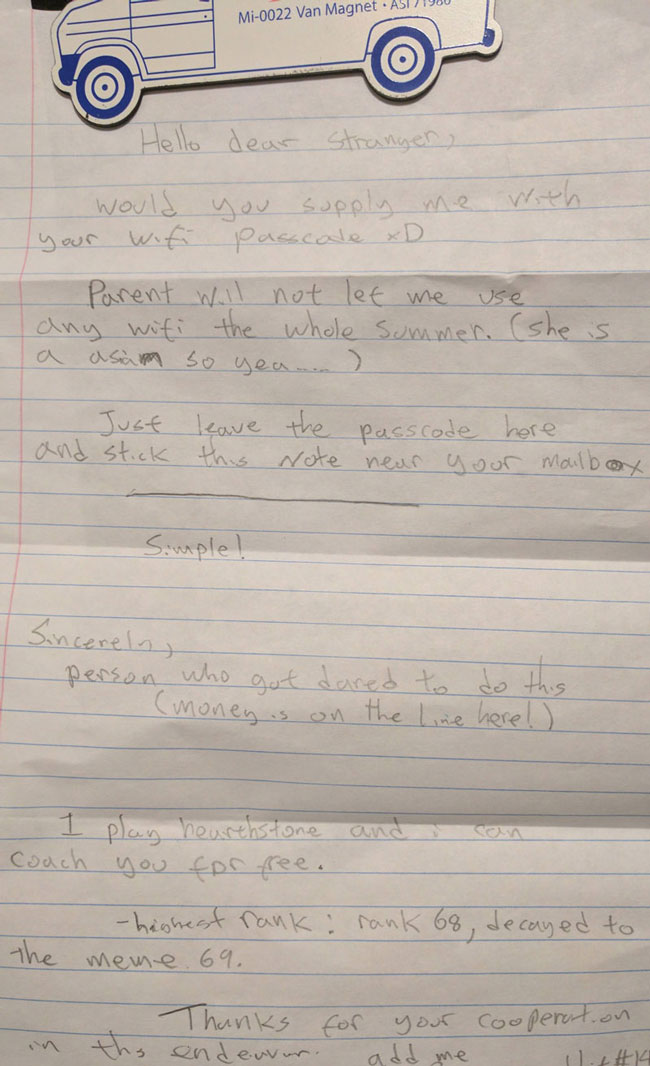 Mi-0022 Van Magnet • ASI 71980
Hello dear stranger,
would you supply me with
your wifi passcode xD
Parent will not let me use
any wifi the whole summer. (she is
a asian so yea.....)
Just leave the passcode here
and stick this note near your mailbox
Simple!
Sincereln,
person who got dared to do this
(money is on the line here!)
I play hearthstone and i can
coach you for free.
-highest rank: rank 68, decayed to
the meme 69.
Thanks for your cooperation
in ths endeavur. add me